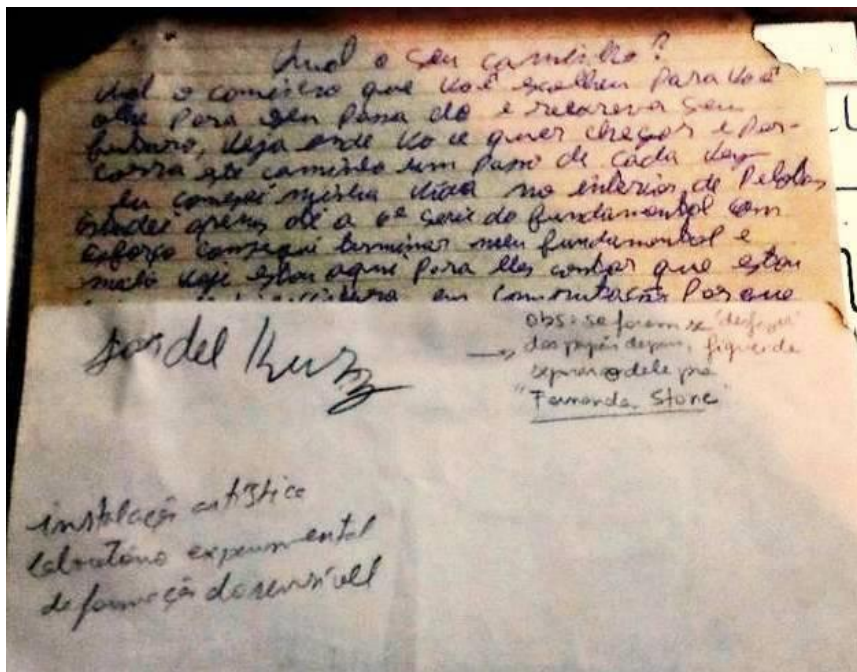 Qual o seu caminho?
Qual o caminho que você escolheu para você
olhe para seu passado e reescreva seu
futuro, veja onde você quer chegar e per-
corra este caminho um passo de cada vez
eu comecei minha vida no interior de Pelotas
estudei apenas até a 6ª serie do fundamental com
esforço consegui terminar meu fundamental e
hoje estou aqui para lhes contar que estou
em construção porque
obs: se forem se "desfazer"
dos papéis depois,
dele pra
"Fernanda Stone"
instalação artística
laboratório experimental
de formação do sensível